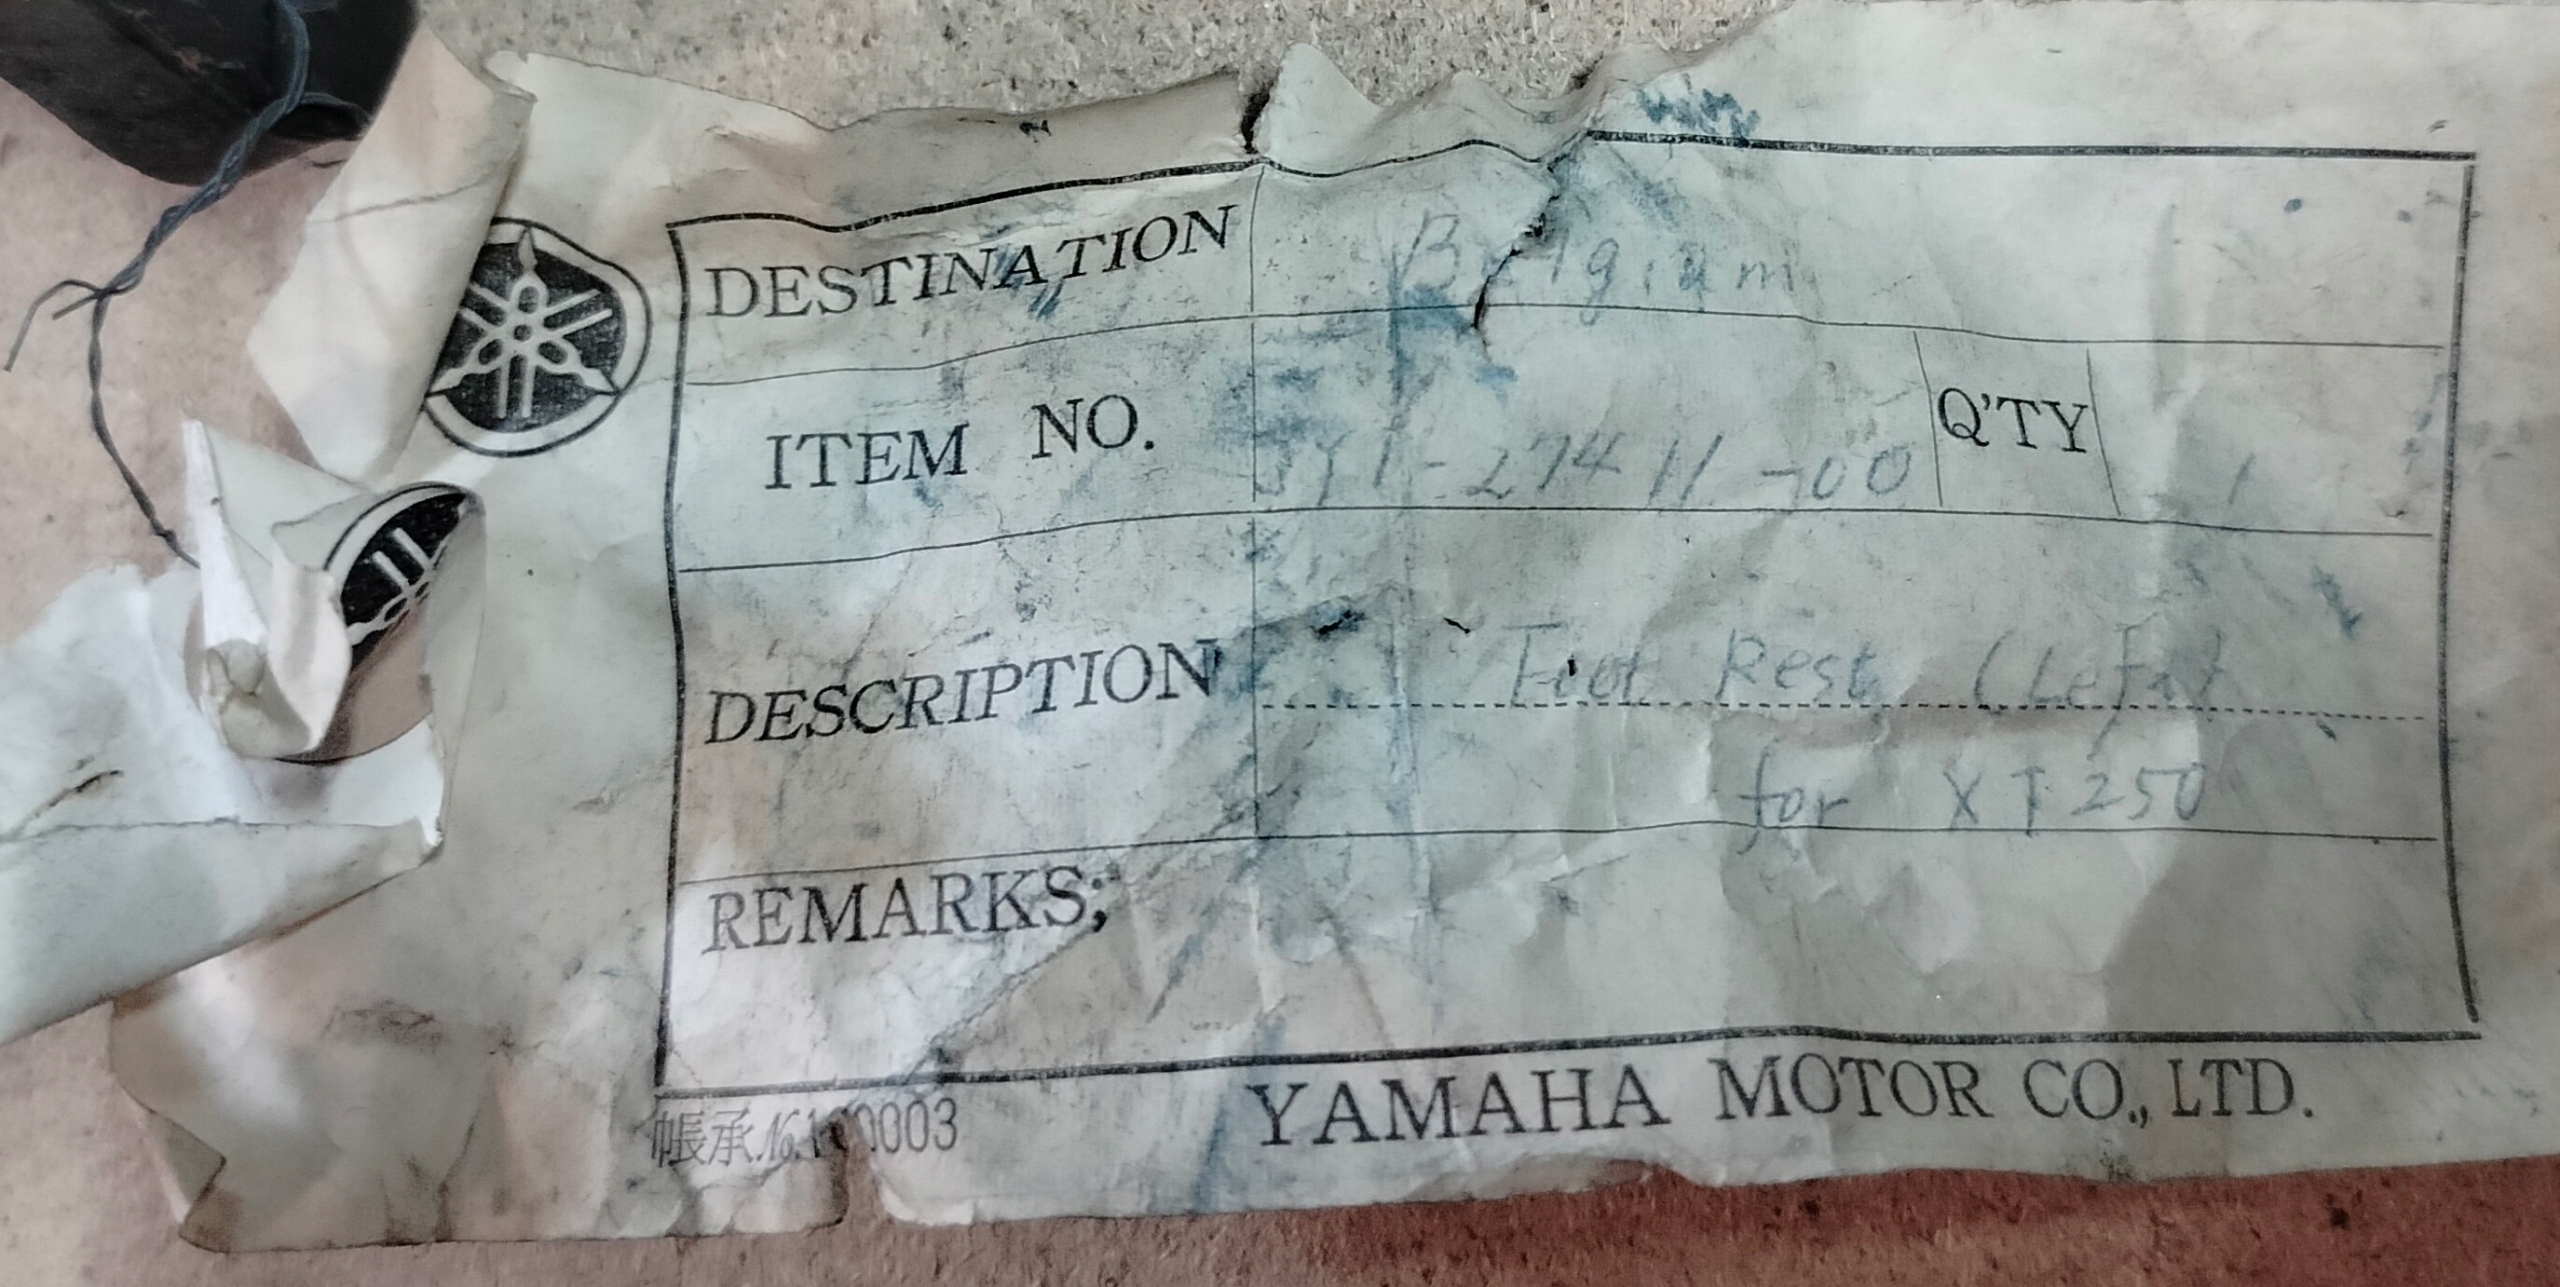 DESTINATION Belgium
ITEM NO. 3Y1-27411-00 Q'TY 1
DESCRIPTION Foot Rest (Left)
for XT250
REMARKS;
帳承No. YAMAHA MOTOR CO., LTD.